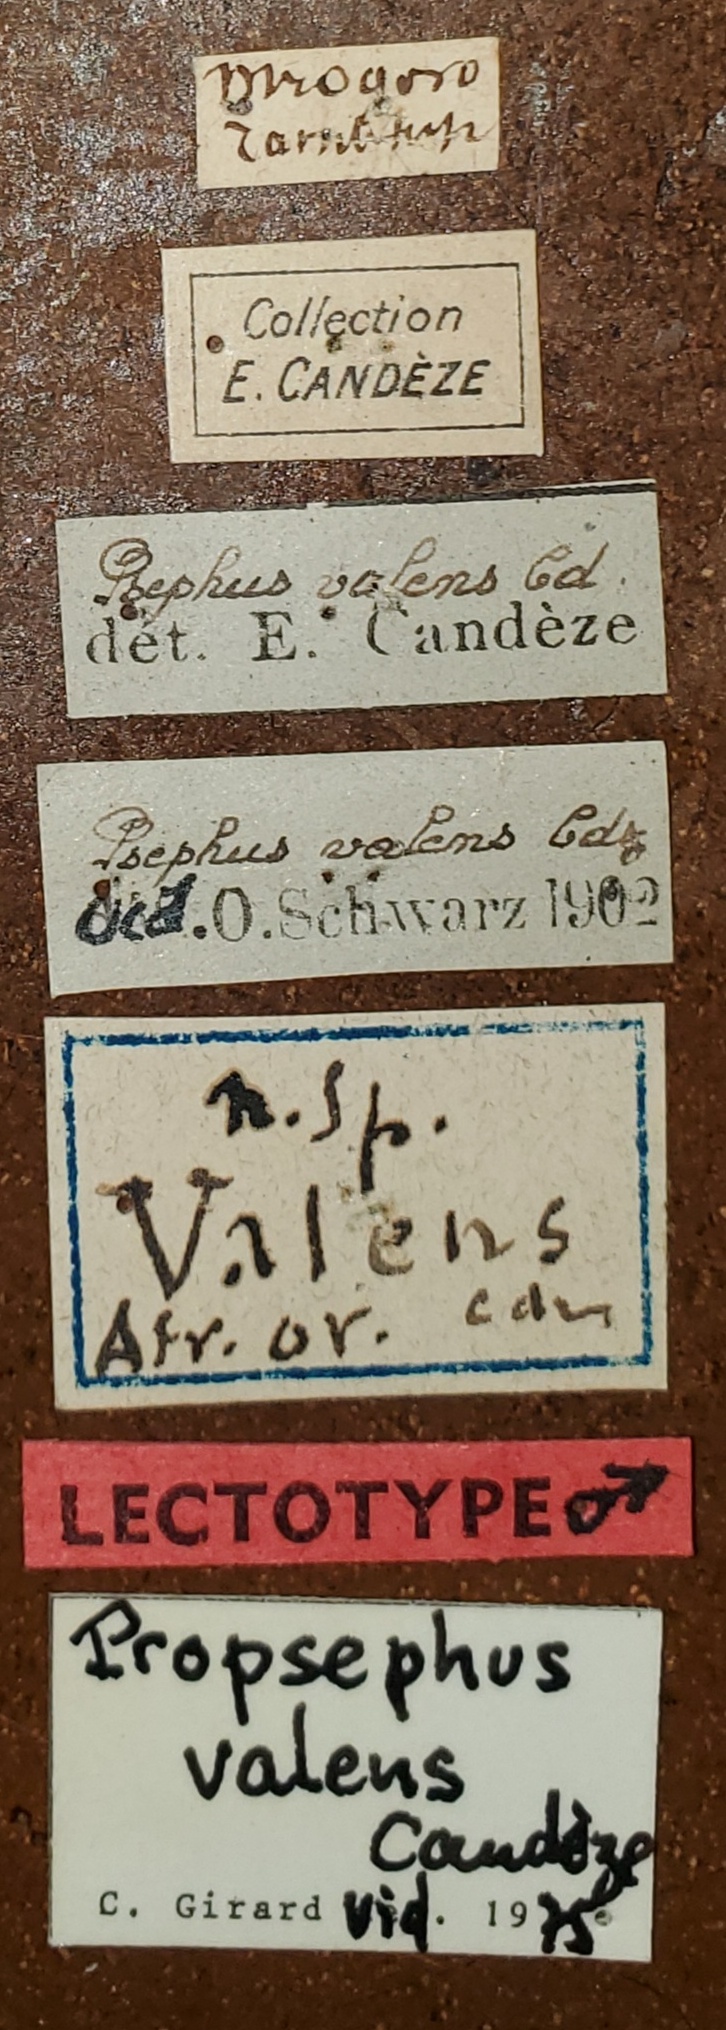 Collection
E. CANDÈZE
Psephus valens Cd.
det. E. Candèze
Psephus valens Cdz
vid.O.Schwarz 1902
n.sp.
Valens
Afr. or. cdz
LECTOTYPE♂
Propsephus
valens
Candèze
C. Girard vid. 1975